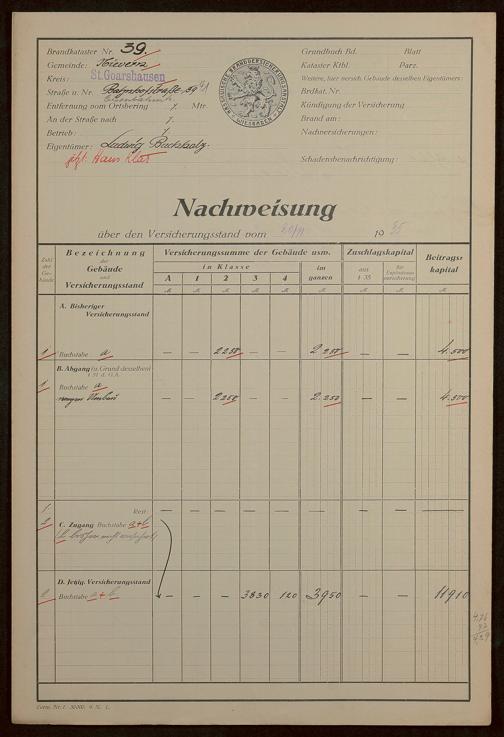 Brandkataster Nr. 39.
Gemeinde: Nievern
Kreis: St. Goarshausen
Straße u. Nr. Bahnhofstraße 39
Entfernung vom Ortsbering 7. Mtr.
An der Straße nach 7.
Betrieb:
Eigentümer: Ludwig
jetzt Hans
Grundbuch Bd. Blatt
Kataster Ktbl. Parz.
Weitere, hier versich. Gebäude desselben Eigentümers:
Brdkat. Nr.
Kündigung der Versicherung
Brand am:
Nachversicherungen:
Schadensbenachrichtigung:
NASSAUISCHE BRANDVERSICHERUNGSANSTALT WIESBADEN
Nachweisung
über den Versicherungsstand vom 1935
Zahl der Gebäude
Bezeichnung der Gebäude und Versicherungsstand
Versicherungssumme der Gebäude usw.
in Klasse
A 1 2 3 4
im ganzen
Zuschlagskapital
aus § 35
für Explosionsversicherung
Beitragskapital
M M M M M M M M M
A. Bisheriger Versicherungsstand
1 Buchstabe a — — 2250 — — 2250 — — 4.500
B. Abgang (u. Grund desselben)
1 Buchstabe a
wegen Umbau — — 2250 — — 2.250 — — 4.500
Rest — — — — — — — — —
2 C. Zugang Buchstabe a+b
D. Jetzig. Versicherungsstand
2 Buchstabe a+b — — — 3830 120 3950 — — 11910